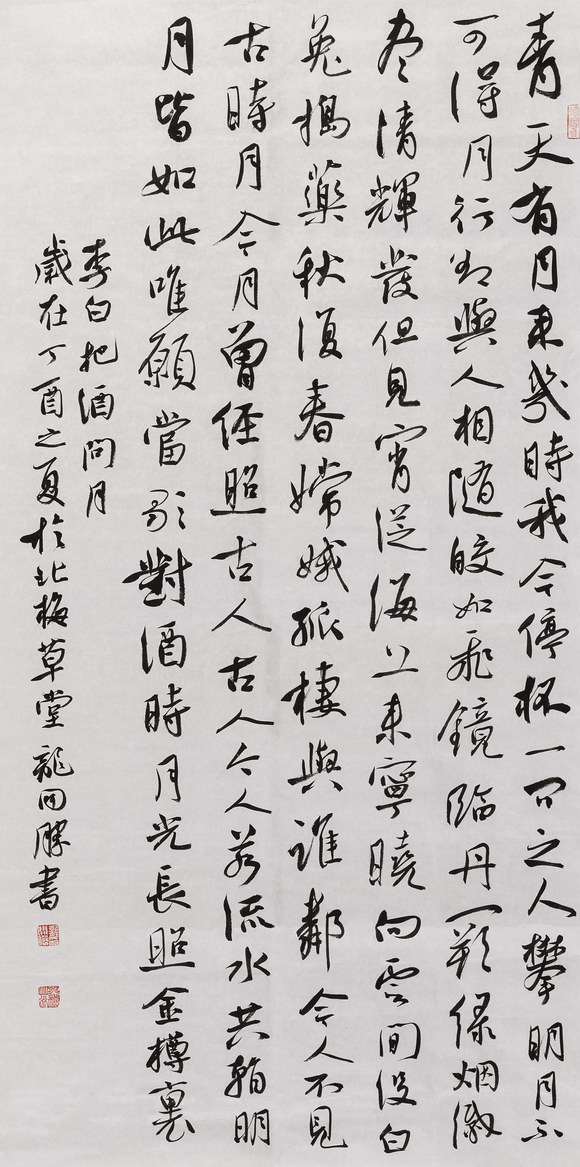 青天有月来幾時我今停杯一问之人攀明月不
可得月行却與人相随皎如飛鏡臨丹闕绿烟滅
尽清輝發但見宵從海上来寧曉向雲間没白
兔搗藥秋復春嫦娥孤棲與誰鄰今人不見
古時月今月曾經照古人古人今人若流水共看明
月皆如此唯願當歌對酒時月光長照金樽裏
李白把酒問月
歲在丁酉之夏於北梅草堂龍勝書